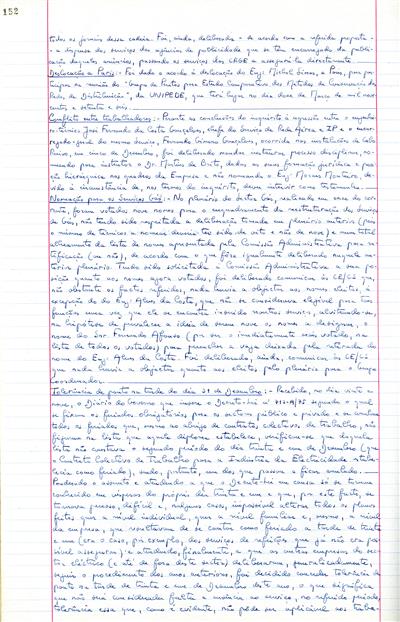 152
todos os jornais dessa cadeia. Foi, ainda, deliberado - de acordo com a referida proposta -
- a dispensa dos serviços das agências de publicidade que se têm encarregado da publi-
cação daqueles anúncios, passando os serviços dos CRGE a assegurá-la directamente.
Deslocação a Paris:- Foi dado o acordo à deslocação do Engº Michel a Paris, para par-
ticipar na reunião do "Grupo de Peritos para Estudo Comparativo dos Métodos de Conservação das
Redes de Distribuição", da UNIPEDE, que terá lugar no dia doze de Março de mil nove-
centos e setenta e seis.
Conflito entre trabalhadores:- Perante as conclusões do inquérito à agressão entre o engenhei-
ro-técnico José Fernando da Costa Gonçalves, chefe do Serviço de Rede Aérea e IP e o encar-
regado-geral do mesmo Serviço, Fernando Gonçalves, ocorrida nas instalações de Cabo
Ruivo, em cinco de Dezembro, foi deliberado mandar instaurar, processo disciplinar, no-
meando para instrutor o Dr. Matos de Brito, dadas as suas formação jurídica e posi-
ção hierárquica nos quadros da Empresa e não nomeando o Engº Morais Monteiro, de-
vido à circunstância de, nos termos do inquérito, dever intervir como testemunha.
Nomeação para os Serviços Gás:- No plenário do sector Gás, realizado em onze do cor-
rente, foram votados nove nomes para o enquadramento da reestruturação do Serviço
de Gás, não tendo sido respeitada a deliberação tomada em plenário anterior (para
o mínimo de técnicos a nomear deveria ter sido de sete e não de nove) e num total
alheamento da lista de nomes apresentada pela Comissão Administrativa para ra-
tificação (ou não), de acordo com o que fora igualmente deliberado naquele an-
terior plenário. Tendo sido solicitada à Comissão Administrativa a sua po-
sição quanto aos nomes agora votados, foi deliberado comunicar à CE/Gás que,
não obstante os factos referidos, nada havia a objectar aos nomes eleitos, à
excepção do do Engº Alves da Costa, que não se considerava elegível para tais
funções uma vez que ele se encontra inserido noutros serviços, alvitrando-se,
na hipótese de prevalecer a ideia de serem nove os nomes a designar, o
nome do Snr. Fernando Affonso (por ser o imediatamente mais votado, na
lista de todos os votados), para preencher a vaga deixada pela retirada do
nome do Engº Alves da Costa. Foi deliberado, ainda, comunicar à CE/Gás
que nada havia a objectar quanto aos eleitos, pelo plenário para o Grupo
Coordenador.
Tolerância de ponto na tarde do dia 31 de Dezembro:- Recebido, no dia vinte e
nove, o Diário do Governo que insere o Decreto-Lei nº 713-A/75 segundo o qual
se fixam os feriados obrigatórios, para os sectores público e privado e se anulam
todos os feriados que, mesmo ao abrigo de contratos colectivos de trabalho, não
figurem na lista que aquele diploma estabelece, verifica-se que daquela
lista não constava o segundo período do dia trinta e um de Dezembro (que
o Contrato Colectivo de Trabalho para a Indústria da Electricidade estabe-
lecia como feriado), sendo, portanto, um dos que passou a ficar anulado.
Ponderado o assunto e atendendo a que o Decreto-Lei em causa só se tornou
conhecido em vésperas do próprio dia trinta e um e que, por este facto, se
tornava penoso, difícil e, nalguns casos, impossível alterar todos os planos
feitos quer a nível individual, quer a nível familiar e, mesmo, a nível
da empresa, que resultavam de se contar como feriado a tarde de trinta
e um (era o caso, por exemplo, dos serviços de refeições que já não era pos-
sível assegurar) e atendendo, finalmente, a que as outras empresas do sec-
tor eléctrico (e até de fora deste sector) deliberaram, generalizadamente,
seguir o procedimento dos anos anteriores, foi decidido conceder tolerância de
ponto na tarde de trinta e um de Dezembro deste ano, o que significa
que não será considerada falta a ausência ao serviço, no referido período,
tolerância essa que, como é evidente, não pode ser aplicável aos traba-